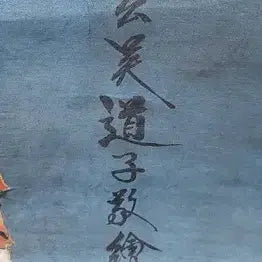 吳道子敬繪